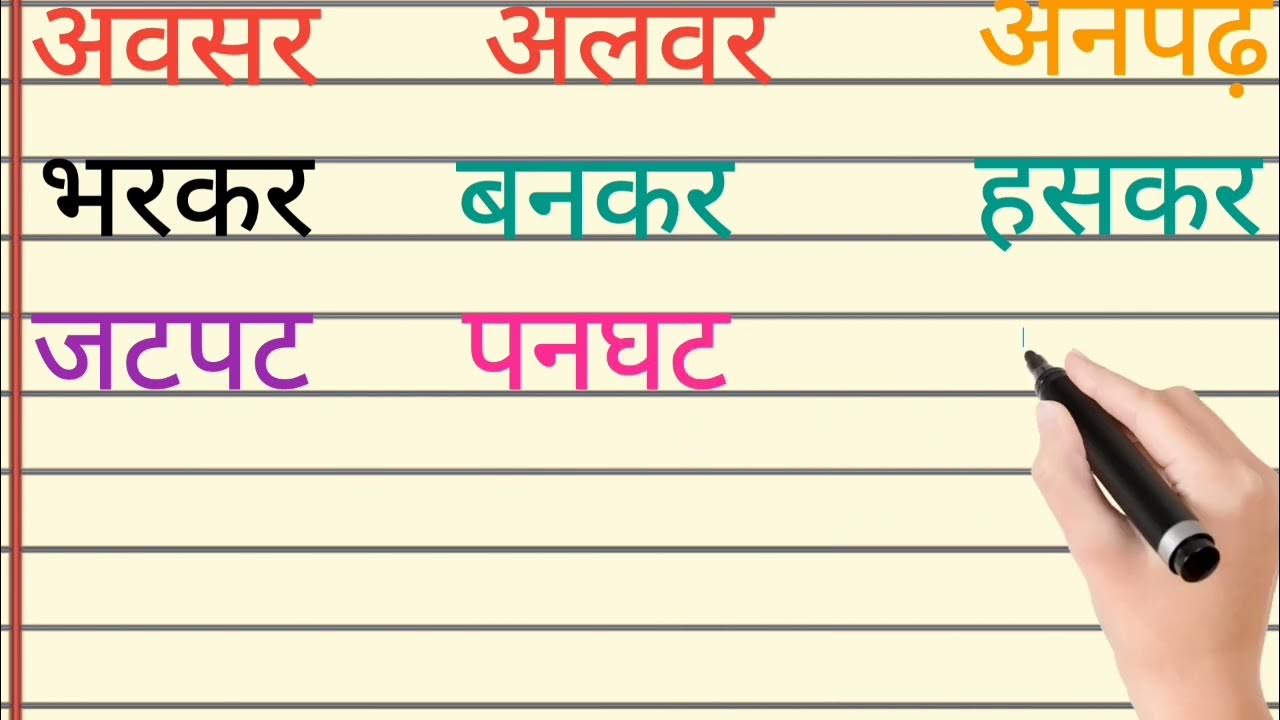 अवसर अलवर अनपढ़
भरकर बनकर हसकर
जटपट पनघट